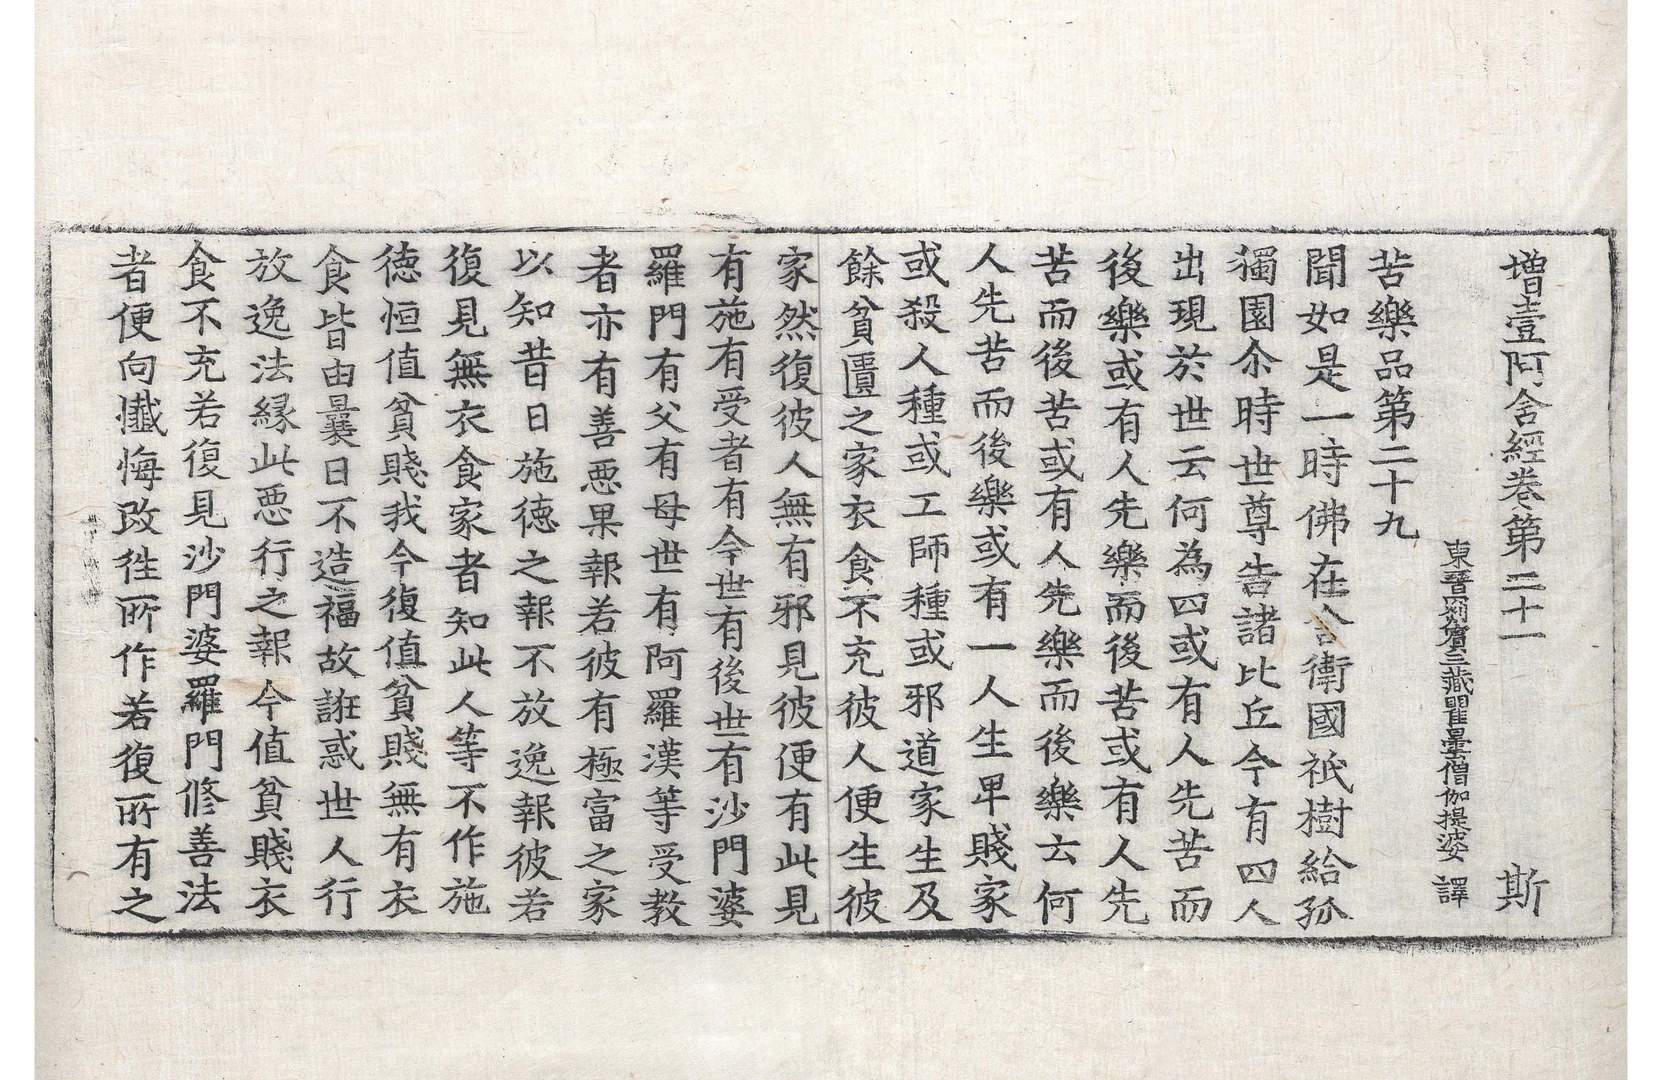 增壹阿含經卷第二十一 斯
東晉罽賓三藏瞿曇僧伽提婆 譯
苦樂品第二十九
聞如是一時佛在舍衛國祇樹給孤
獨園尒時世尊告諸比丘今有四人
出現於世云何為四或有人先苦而
後樂或有人先樂而後苦或有人先
苦而後苦或有人先樂而後樂云何
人先苦而後樂或有一人生卑賤家
或殺人種或工師種或邪道家生及
餘貧匱之家衣食不充彼人便生彼
家然復彼人無有邪見彼便有此見
有施有受者有今世有後世有沙門婆
羅門有父有母世有阿羅漢等受教
者亦有善惡果報若彼有極富之家
以知昔日施德之報不放逸報彼若
復見無衣食家者知此人等不作施
德恒值貧賤我今復值貧賤無有衣
食皆由曩日不造福故誑惑世人行
放逸法緣此惡行之報今值貧賤衣
食不充若復見沙門婆羅門修善法
者便向懺悔改徃所作若復所有之